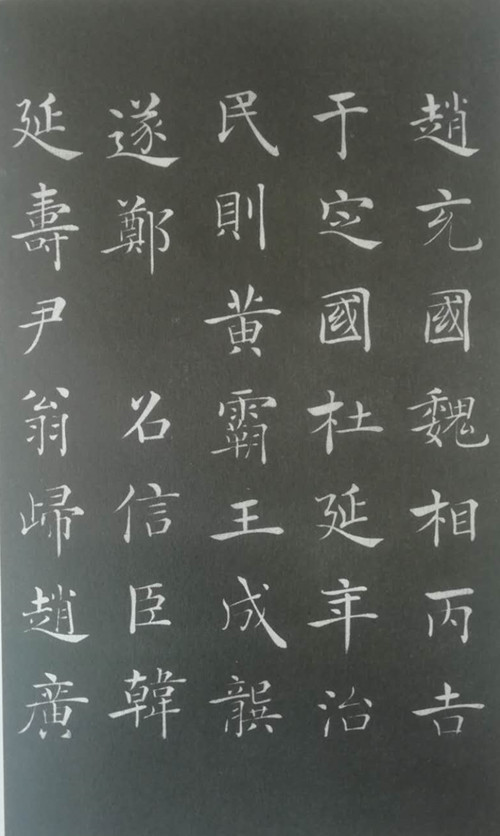 趙充國魏相丙吉
于定國杜延年治
民則黃霸王成龔
遂鄭 召信臣韓
延壽尹翁歸趙廣